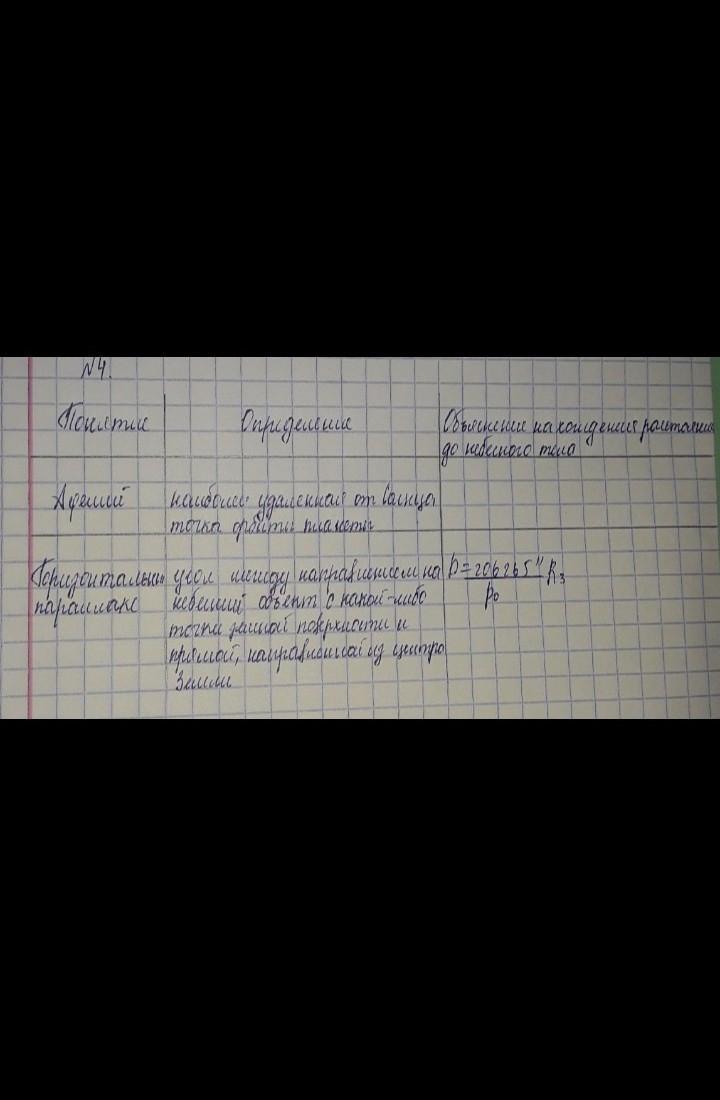 №4.
Понятие Определение Объяснение нахождения расстояния
до небесного тела
Афелий наиболее удаленная от Солнца
точка орбиты планеты
Горизонтальный угол между направлением на D=206265" R₃
параллакс небесный объект с какой-либо p₀
точки земной поверхности и
прямой, направленной из центра
Земли